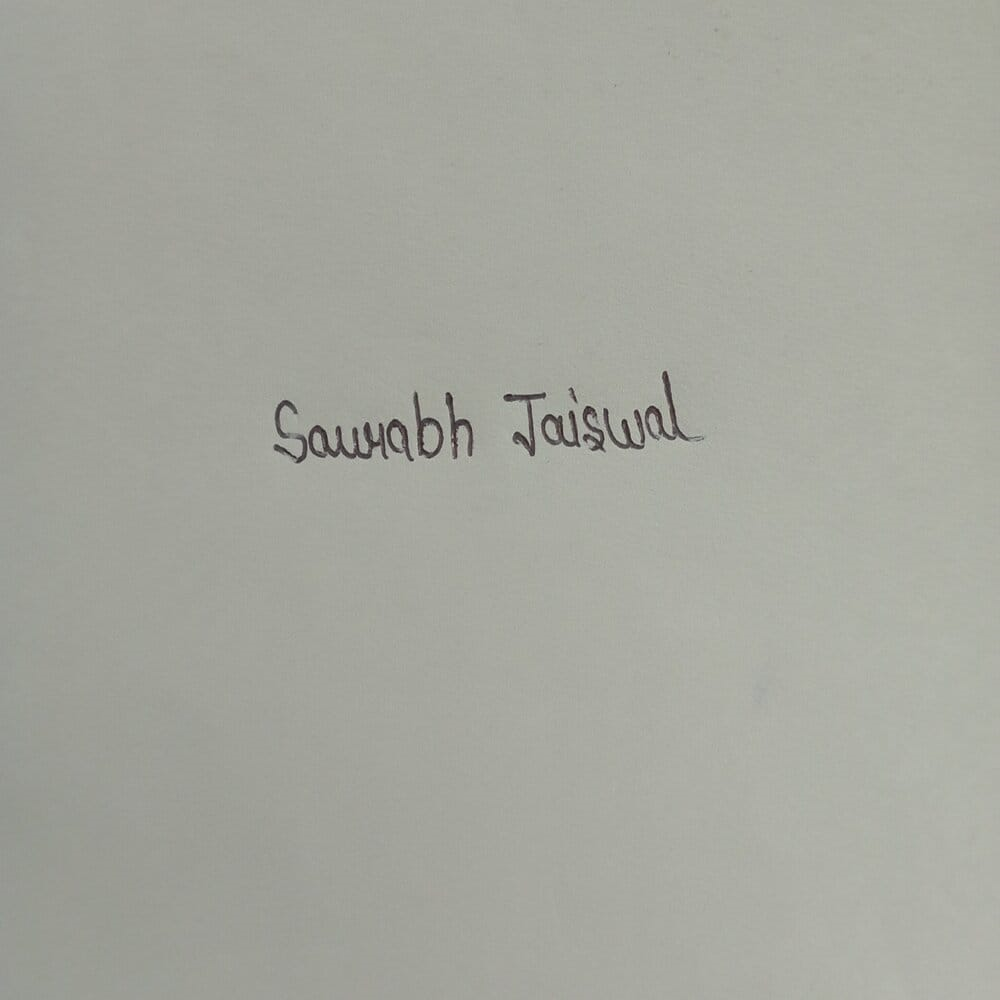 Saurabh Jaiswal